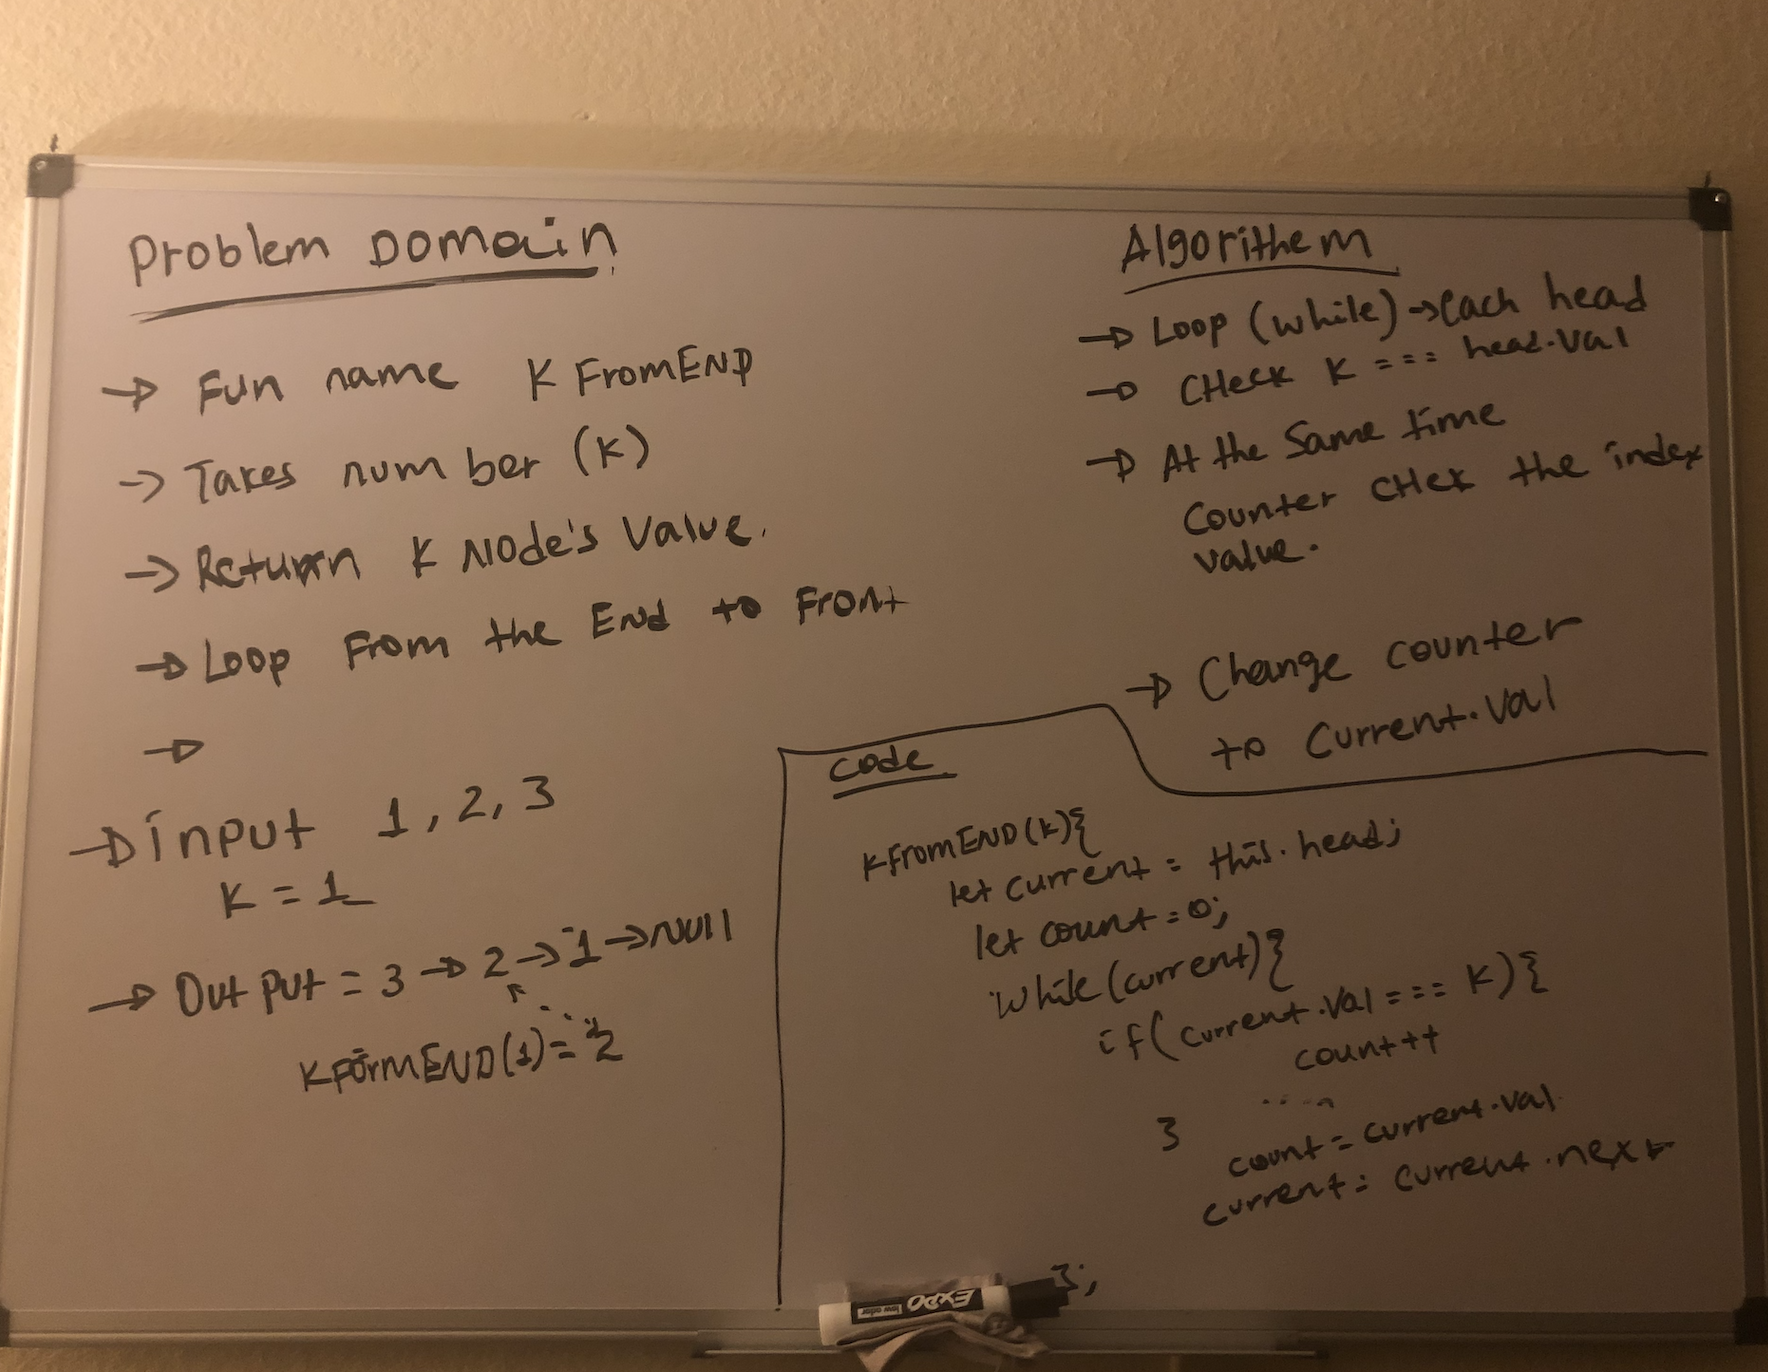 Problem Domain
→ Fun name K FromEND
→ Takes number (K)
→ Return K Node's Value.
→ Loop From the End to Front
→
→ input 1, 2, 3
K = 1
→ Output = 3 → 2 → 1 → Null
KFormEND(1) = 2
Algorithem
→ Loop (while) → each head
→ CHeck K === head.val
→ At the Same time
Counter CHek the index
value.
→ Change counter
to Current.Val
Code
KFromEND(K){
let current = this.head;
let count = 0;
while (current){
if(current.val === K){
count++
....
}
count = current.val
current = current.next
};
EXPO
low odor